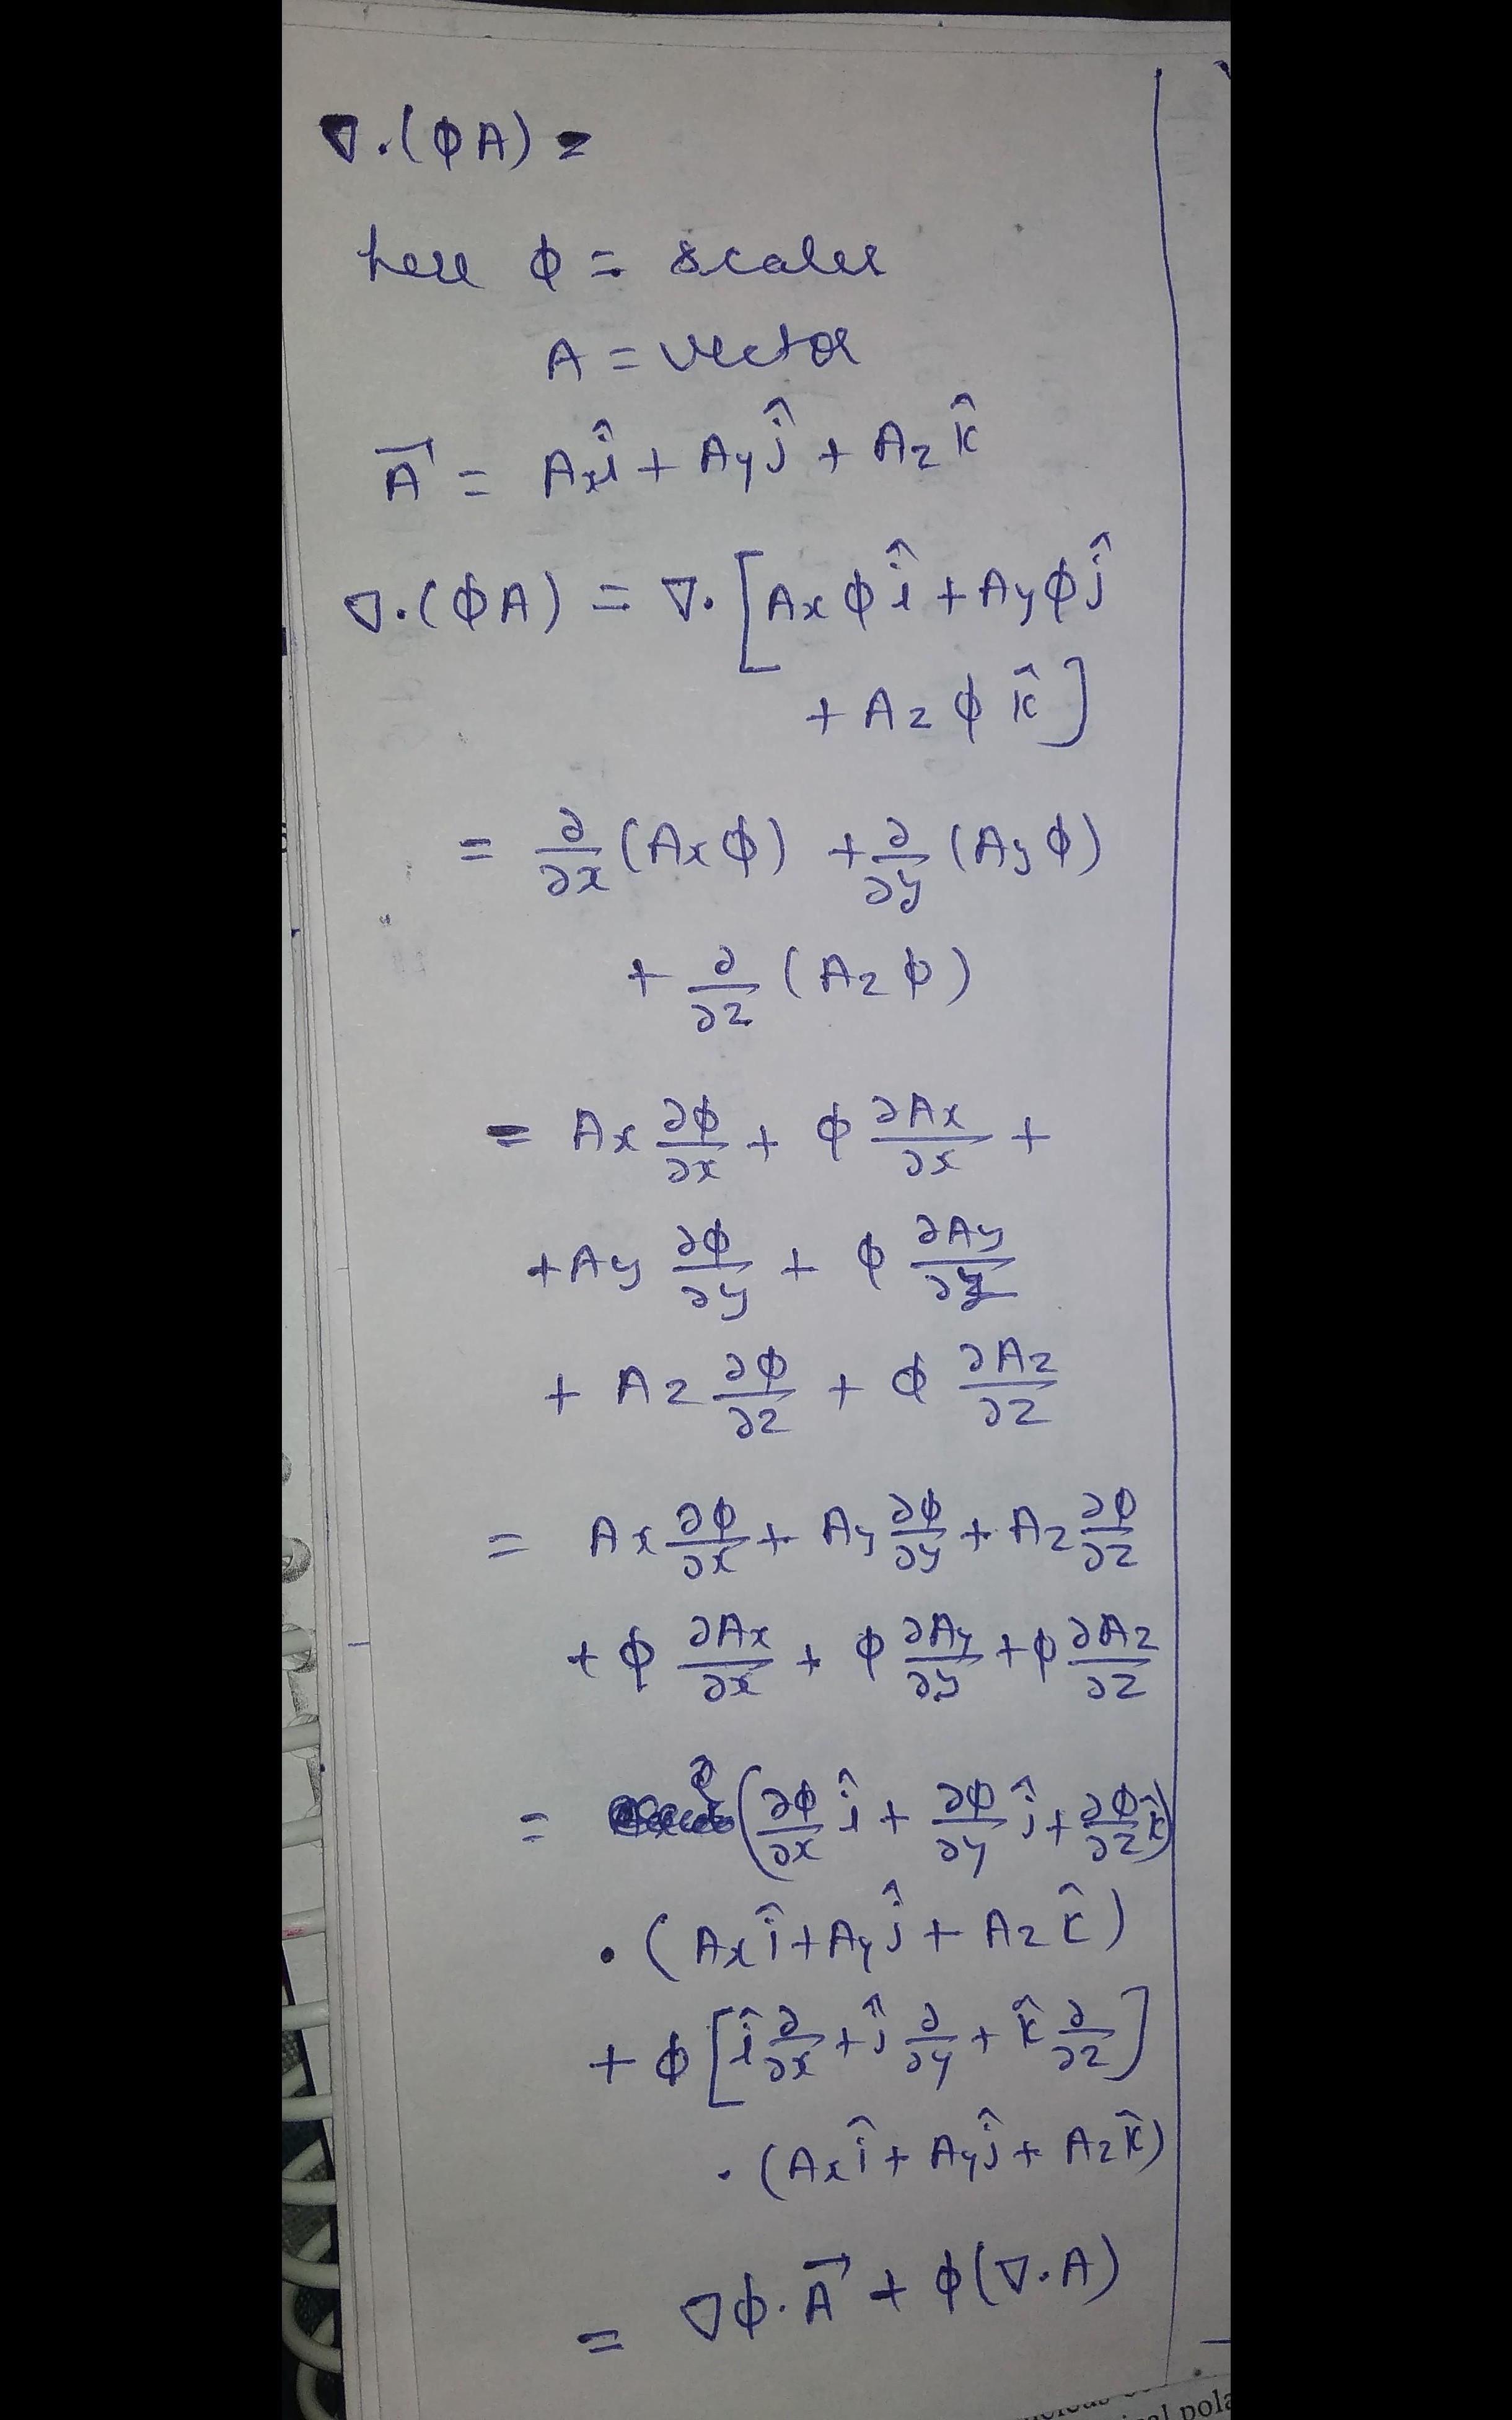 ∇.(ϕA) =
here ϕ = scaler
A = vector
A⃗ = Axî + Ayĵ + Azk̂
∇.(ϕA) = ∇. [Axϕî + Ayϕĵ
+ Azϕk̂]
= ∂/∂x (Axϕ) + ∂/∂y (Ayϕ)
+ ∂/∂z (Azϕ)
= Ax ∂ϕ/∂x + ϕ ∂Ax/∂x +
+ Ay ∂ϕ/∂y + ϕ ∂Ay/∂y
+ Az ∂ϕ/∂z + ϕ ∂Az/∂z
= Ax ∂ϕ/∂x + Ay ∂ϕ/∂y + Az ∂ϕ/∂z
+ ϕ ∂Ax/∂x + ϕ ∂Ay/∂y + ϕ ∂Az/∂z
= (∂ϕ/∂x î + ∂ϕ/∂y ĵ + ∂ϕ/∂z k̂)
. (Axî + Ayĵ + Azk̂)
+ ϕ [î ∂/∂x + ĵ ∂/∂y + k̂ ∂/∂z]
. (Axî + Ayĵ + Azk̂)
= ∇ϕ.A⃗ + ϕ(∇.A)